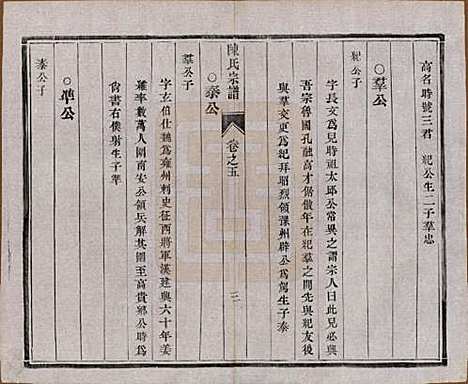 高名時號三君　紀公生二子羣忠
紀公子
○羣公
字長文爲兒時祖太邱公常異之謂宗人曰此兒必興
吾宗魯國孔融高才倨傲年在紀羣之間先與紀友後
與羣交更爲紀拜昭烈領豫州辟公爲駕生子泰
羣公子
陳氏宗譜
卷之五
三
○泰公
字玄伯仕魏爲雍州刺史征西將軍漢建興六十年姜
維率數萬人圍南安公領兵解其圍至高貴鄉公時爲
尙書右僕射生子準
泰公子
○準公